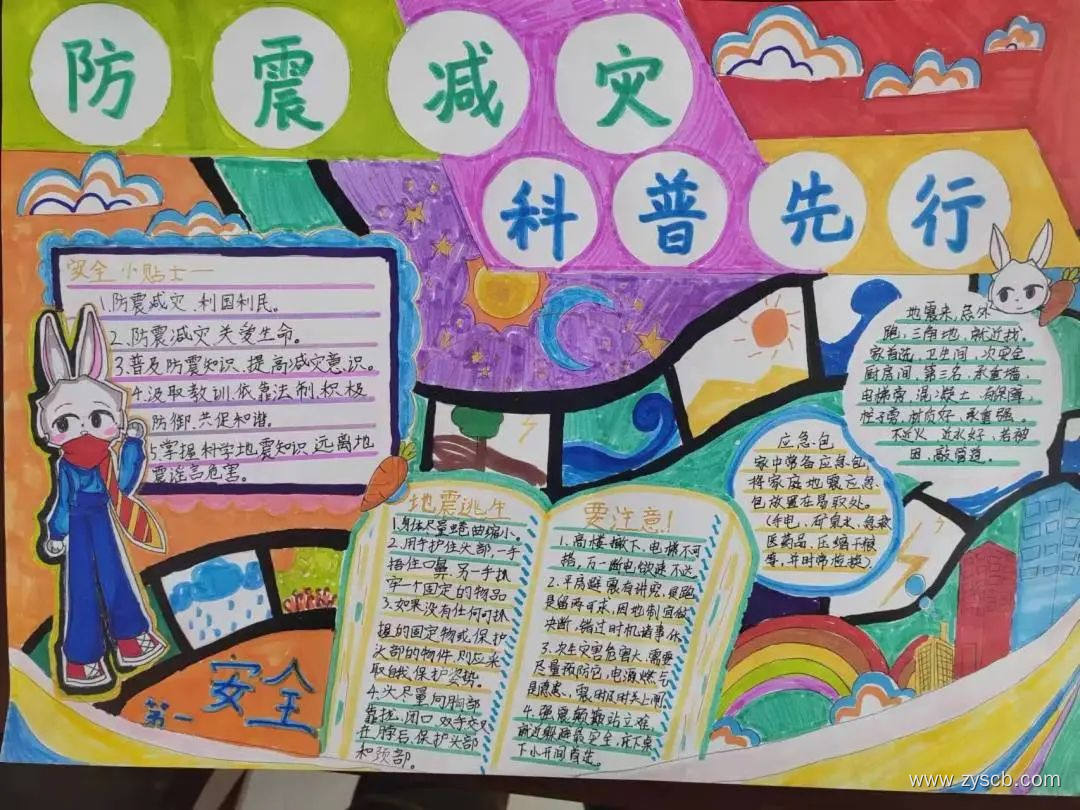 防震减灾
科普先行
安全小贴士
1.防震减灾、利国利民。
2.防震减灾关爱生命。
3普及防震知识、提高减灾意识。
4.汲取教训、依靠法制、积极
防御、共促和谐。
5掌握科学地震知识远离地
震谣言危害。
第一
安全
地震逃生
1.身体尽量蜷曲缩小。
2.用手护住头部,一手
捂住口鼻,另一手抓
牢一个固定的物品
3.如果没有任何可抓
握的固定物或保护
头部的物件,则应采
取自我保护姿势。
4.头尽量向胸部
靠拢,闭口双手交叉
在脖后,保护头部
和颈部。
要注意!
1.高楼撤下,电梯不可
搭,万一断电做速不达
2.平房避震有讲究,是跑
是留两可求,因地制宜做
决断,错过时机诸事休
3.次生灾害危害大,需要
尽量预防它,电源燃气
是隐患、震时及时关上闸
4.强震颠簸站立难,
就近躲避最安全,床下桌
下小开间
应急包
家中常备应急包,
将家庭地震应急
包放置在易取处。
(手电、矿泉水、急救
医药品、压缩干粮
等,并时常检换)。
地震来,忌外
跑,三角地,就近找。
家首选,卫生间,次安全
厨房间,第三名,承重墙,
电梯旁,混凝土,有保障,
材质好,承重强。
不近火,近水好,若被
困,敲管道。
www.zyscb.com